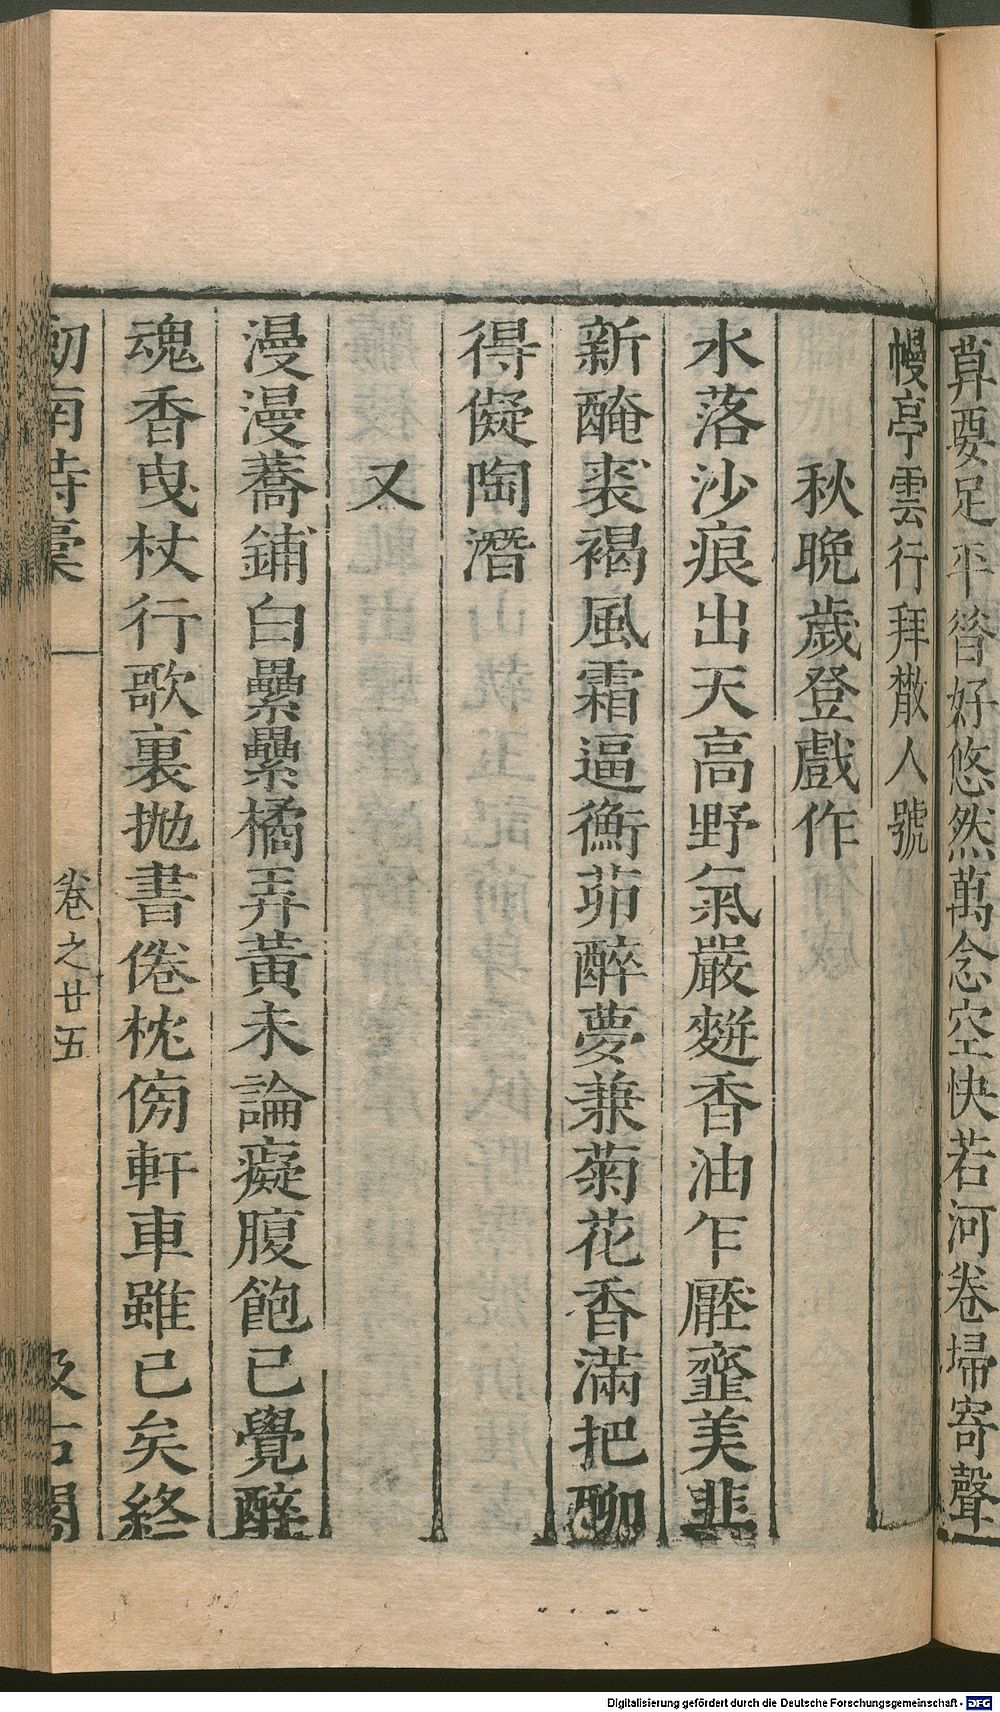 草要足平簪好悠然萬念空快若河卷埽寄聲
幔亭雲行拜散人號
秋晚歲登戲作
水落沙痕出天高野氣嚴麰香油乍壓虀美韭
新醃裘褐風霜逼衡茆醉夢兼菊花香滿把聊
得儗陶潛
又
漫漫蕎鋪白纍纍橘弄黃未論癡腹飽已覺醉
魂香曳杖行歌裏拋書倦枕傍軒車雖已矣終
劍南詩稾
卷之廿五
汲古閣
Digitalisierung gefördert durch die Deutsche Forschungsgemeinschaft - DFG